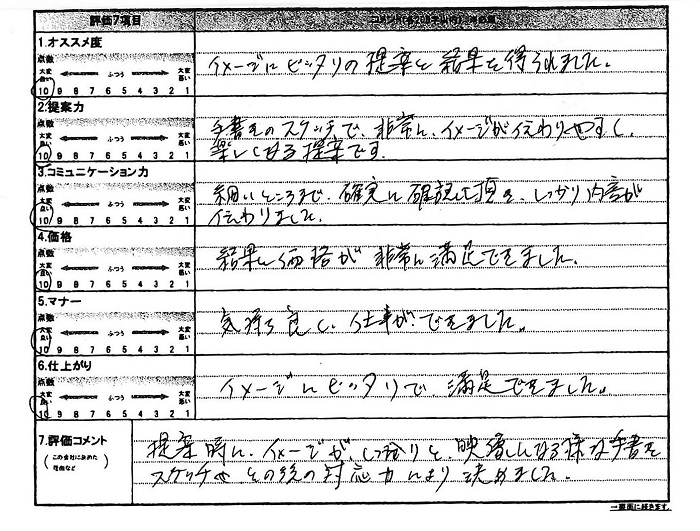 評価7項目
1.オススメ度
点数
大変良い ふつう 大変悪い
10 9 8 7 6 5 4 3 2 1
イメージにピッタリの提案と結果を得られました。
2.提案力
点数
大変良い ふつう 大変悪い
10 9 8 7 6 5 4 3 2 1
手書きのスケッチで、非常に、イメージが伝わりやすく、
楽しくなる提案です。
3.コミュニケーション力
点数
大変良い ふつう 大変悪い
10 9 8 7 6 5 4 3 2 1
細いところまで、確実に確認頂き、しっかり内容が
伝わりました。
4.価格
点数
大変良い ふつう 大変悪い
10 9 8 7 6 5 4 3 2 1
結果と価格が非常に満足できました。
5.マナー
点数
大変良い ふつう 大変悪い
10 9 8 7 6 5 4 3 2 1
気持ち良く、仕事が、できました。
6.仕上がり
点数
大変良い ふつう 大変悪い
10 9 8 7 6 5 4 3 2 1
イメージにピッタリで、満足できました。
7.評価コメント
(この会社に決めた
理由など)
提案時に、イメージが、しっかりと、映像になる様な手書き
スケッチやその後の対応力により決めました。
→裏面に続きます。